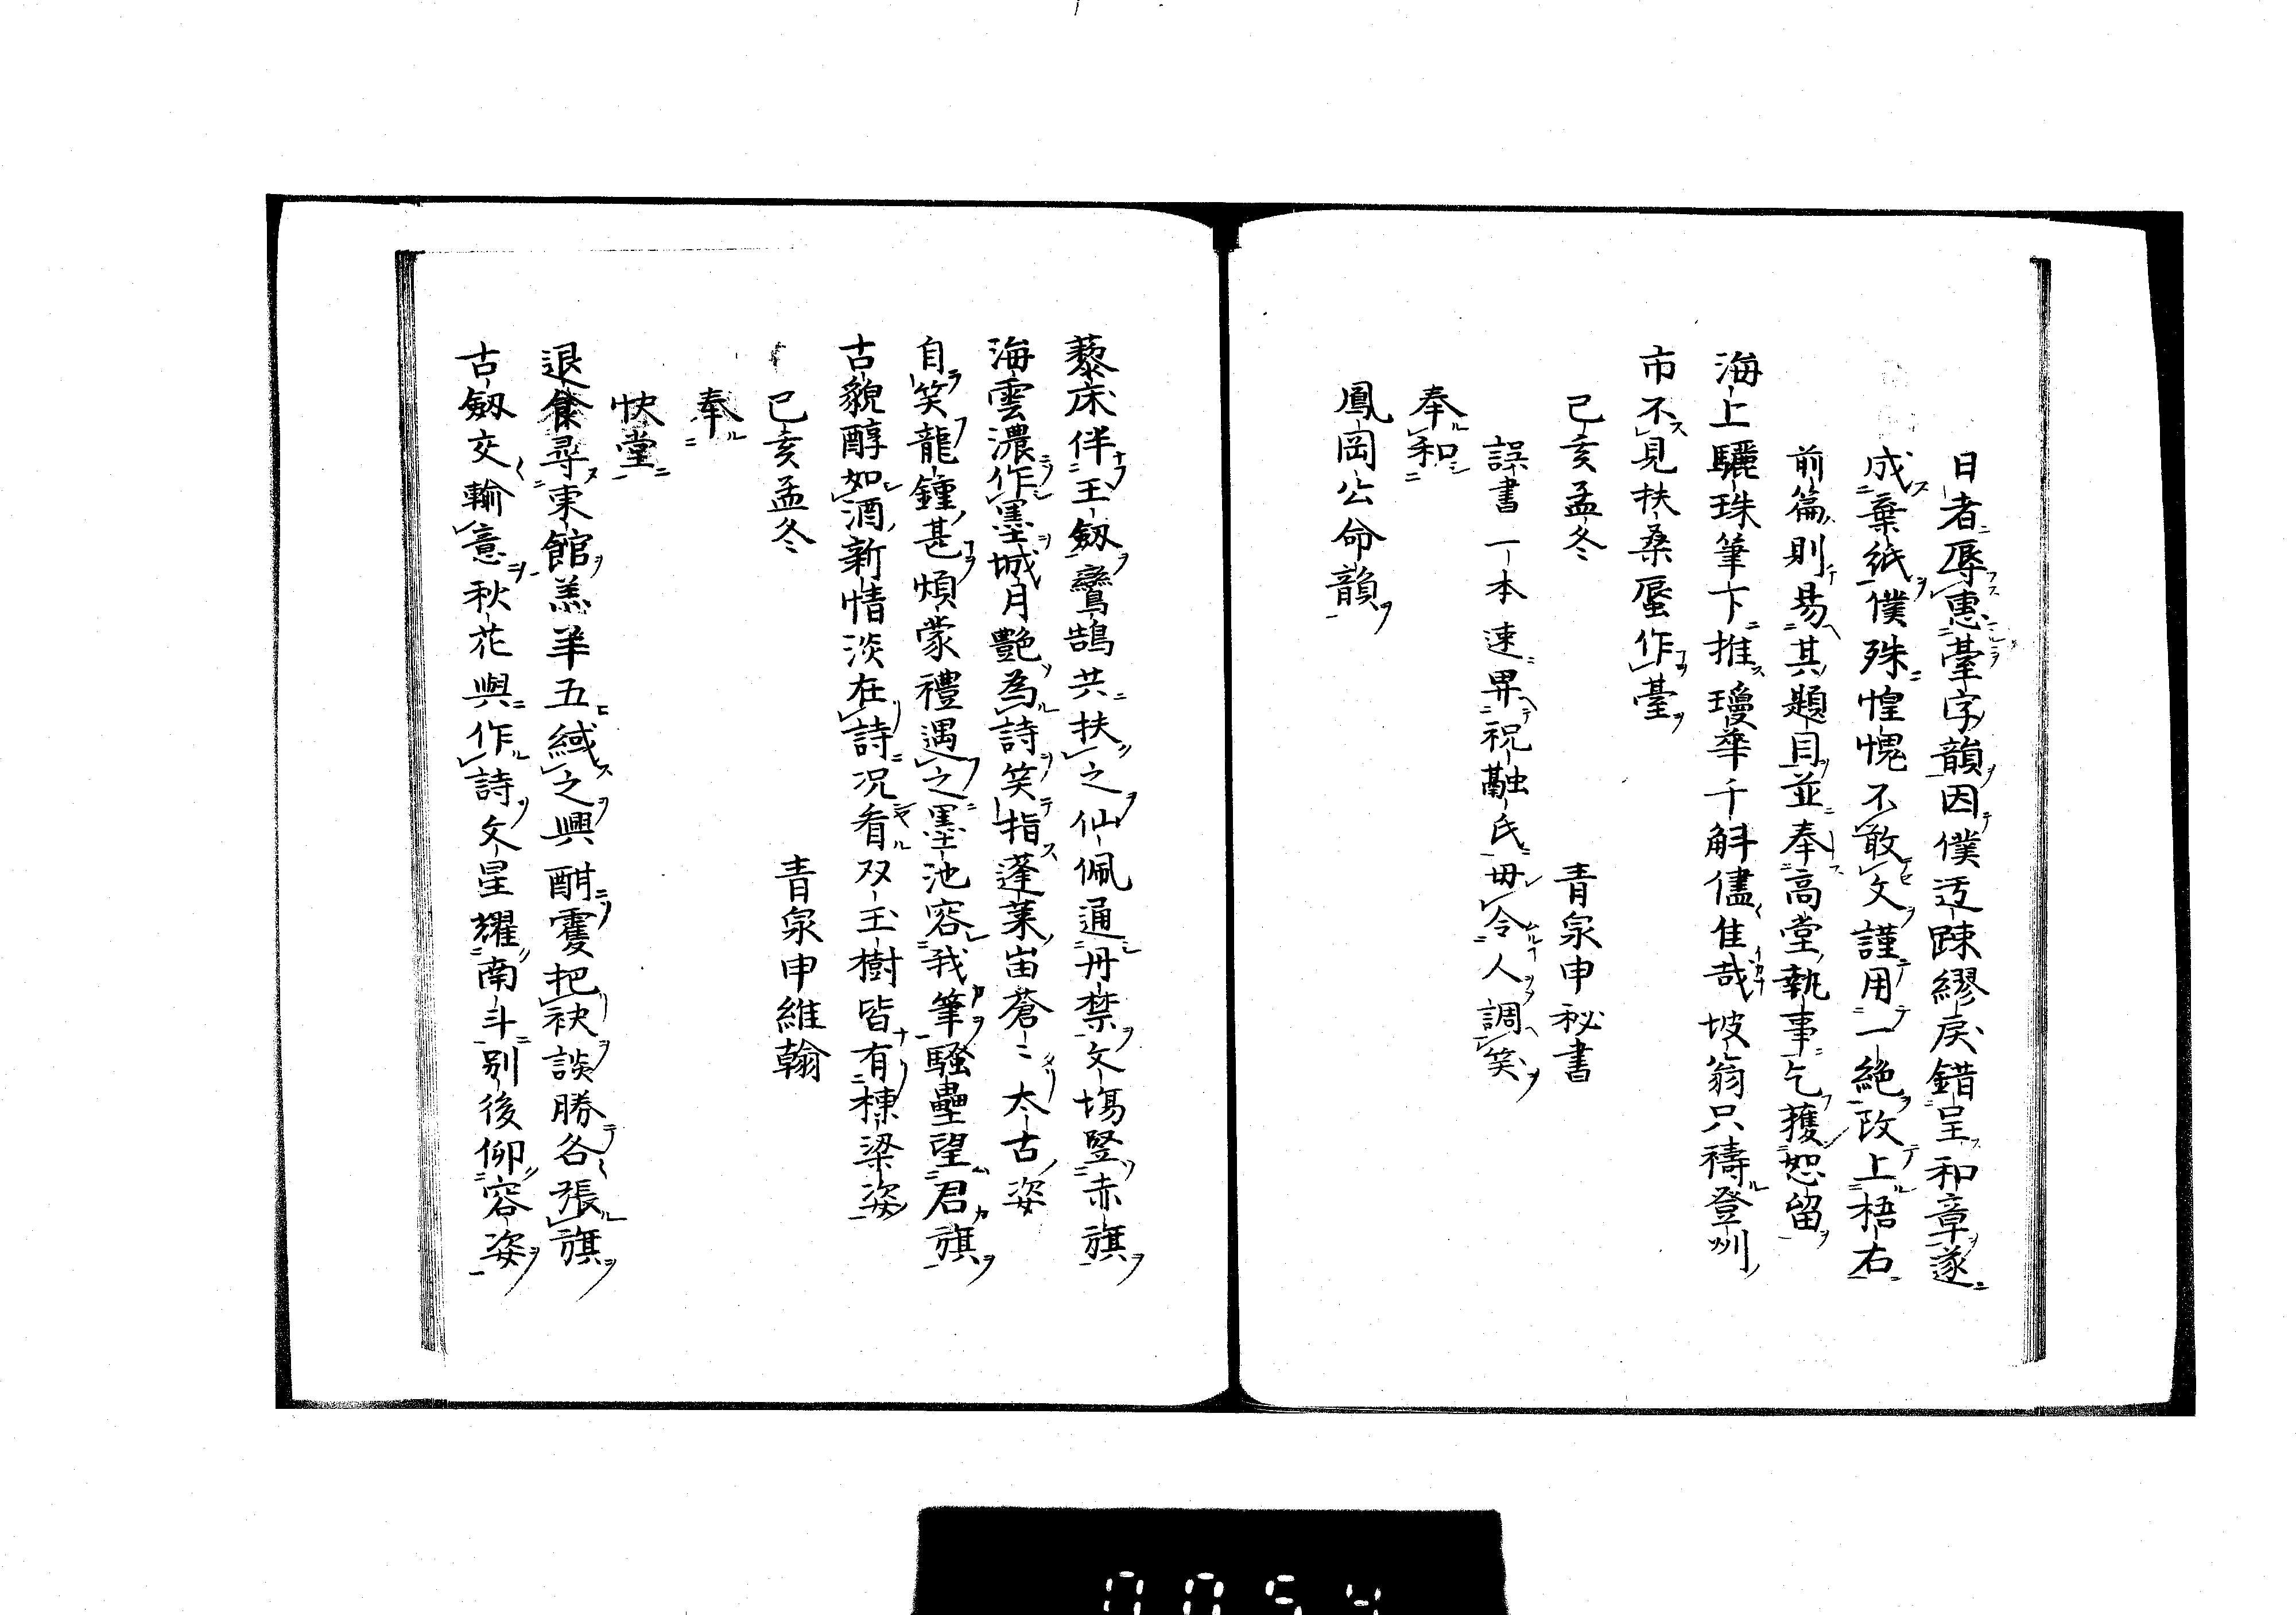 日者辱惠臺字韻因僕迃踈繆戾錯呈和章遂
成棄紙僕殊惶愧不敢文謹用一絶改上梧右
前篇則易其題目並奉高堂執事乞獲恕留
海上驪珠筆下推瓊華千斛儘佳哉坡翁只禱登州
市不見扶桑蜃作臺
己亥孟冬　青泉申秘書
誤書一本速畀祝融氏毋令人調笑
奉和
鳳岡公命韻
藜床伴王劔鸞鵠共扶之仙佩通丹禁文塲竪赤旗
海雲濃作墨城月艷為詩笑指蓬莱嵒蒼〻太古姿
自笑龍鍾甚煩蒙禮遇之墨池容我筆騷壘望君旗
古貌醇如酒新情淡在詩况看双玉樹皆有棟梁姿
己亥孟冬　青泉申維翰
奉
快堂
退食尋東館羔羊五緎之興酣重把袂談勝各張旗
古劔交輸意秋花與作詩文星耀南斗别後仰容姿
0054